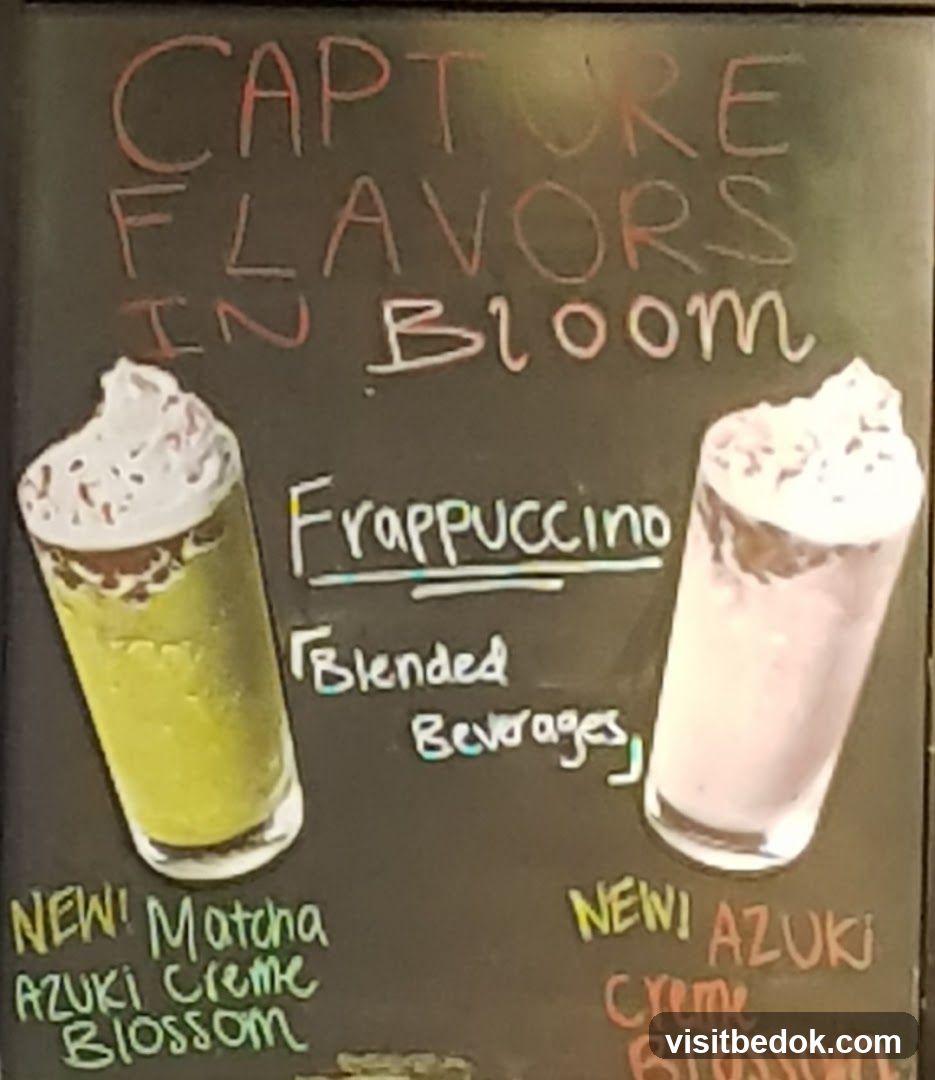 CAPTURE
FLAVORS
IN BlOOM
Frappuccino
「Blended
Beverages」
NEW! Matcha
AZUKi Creme
Blossom
NEW! AZUKi
Creme
visitbedok.com